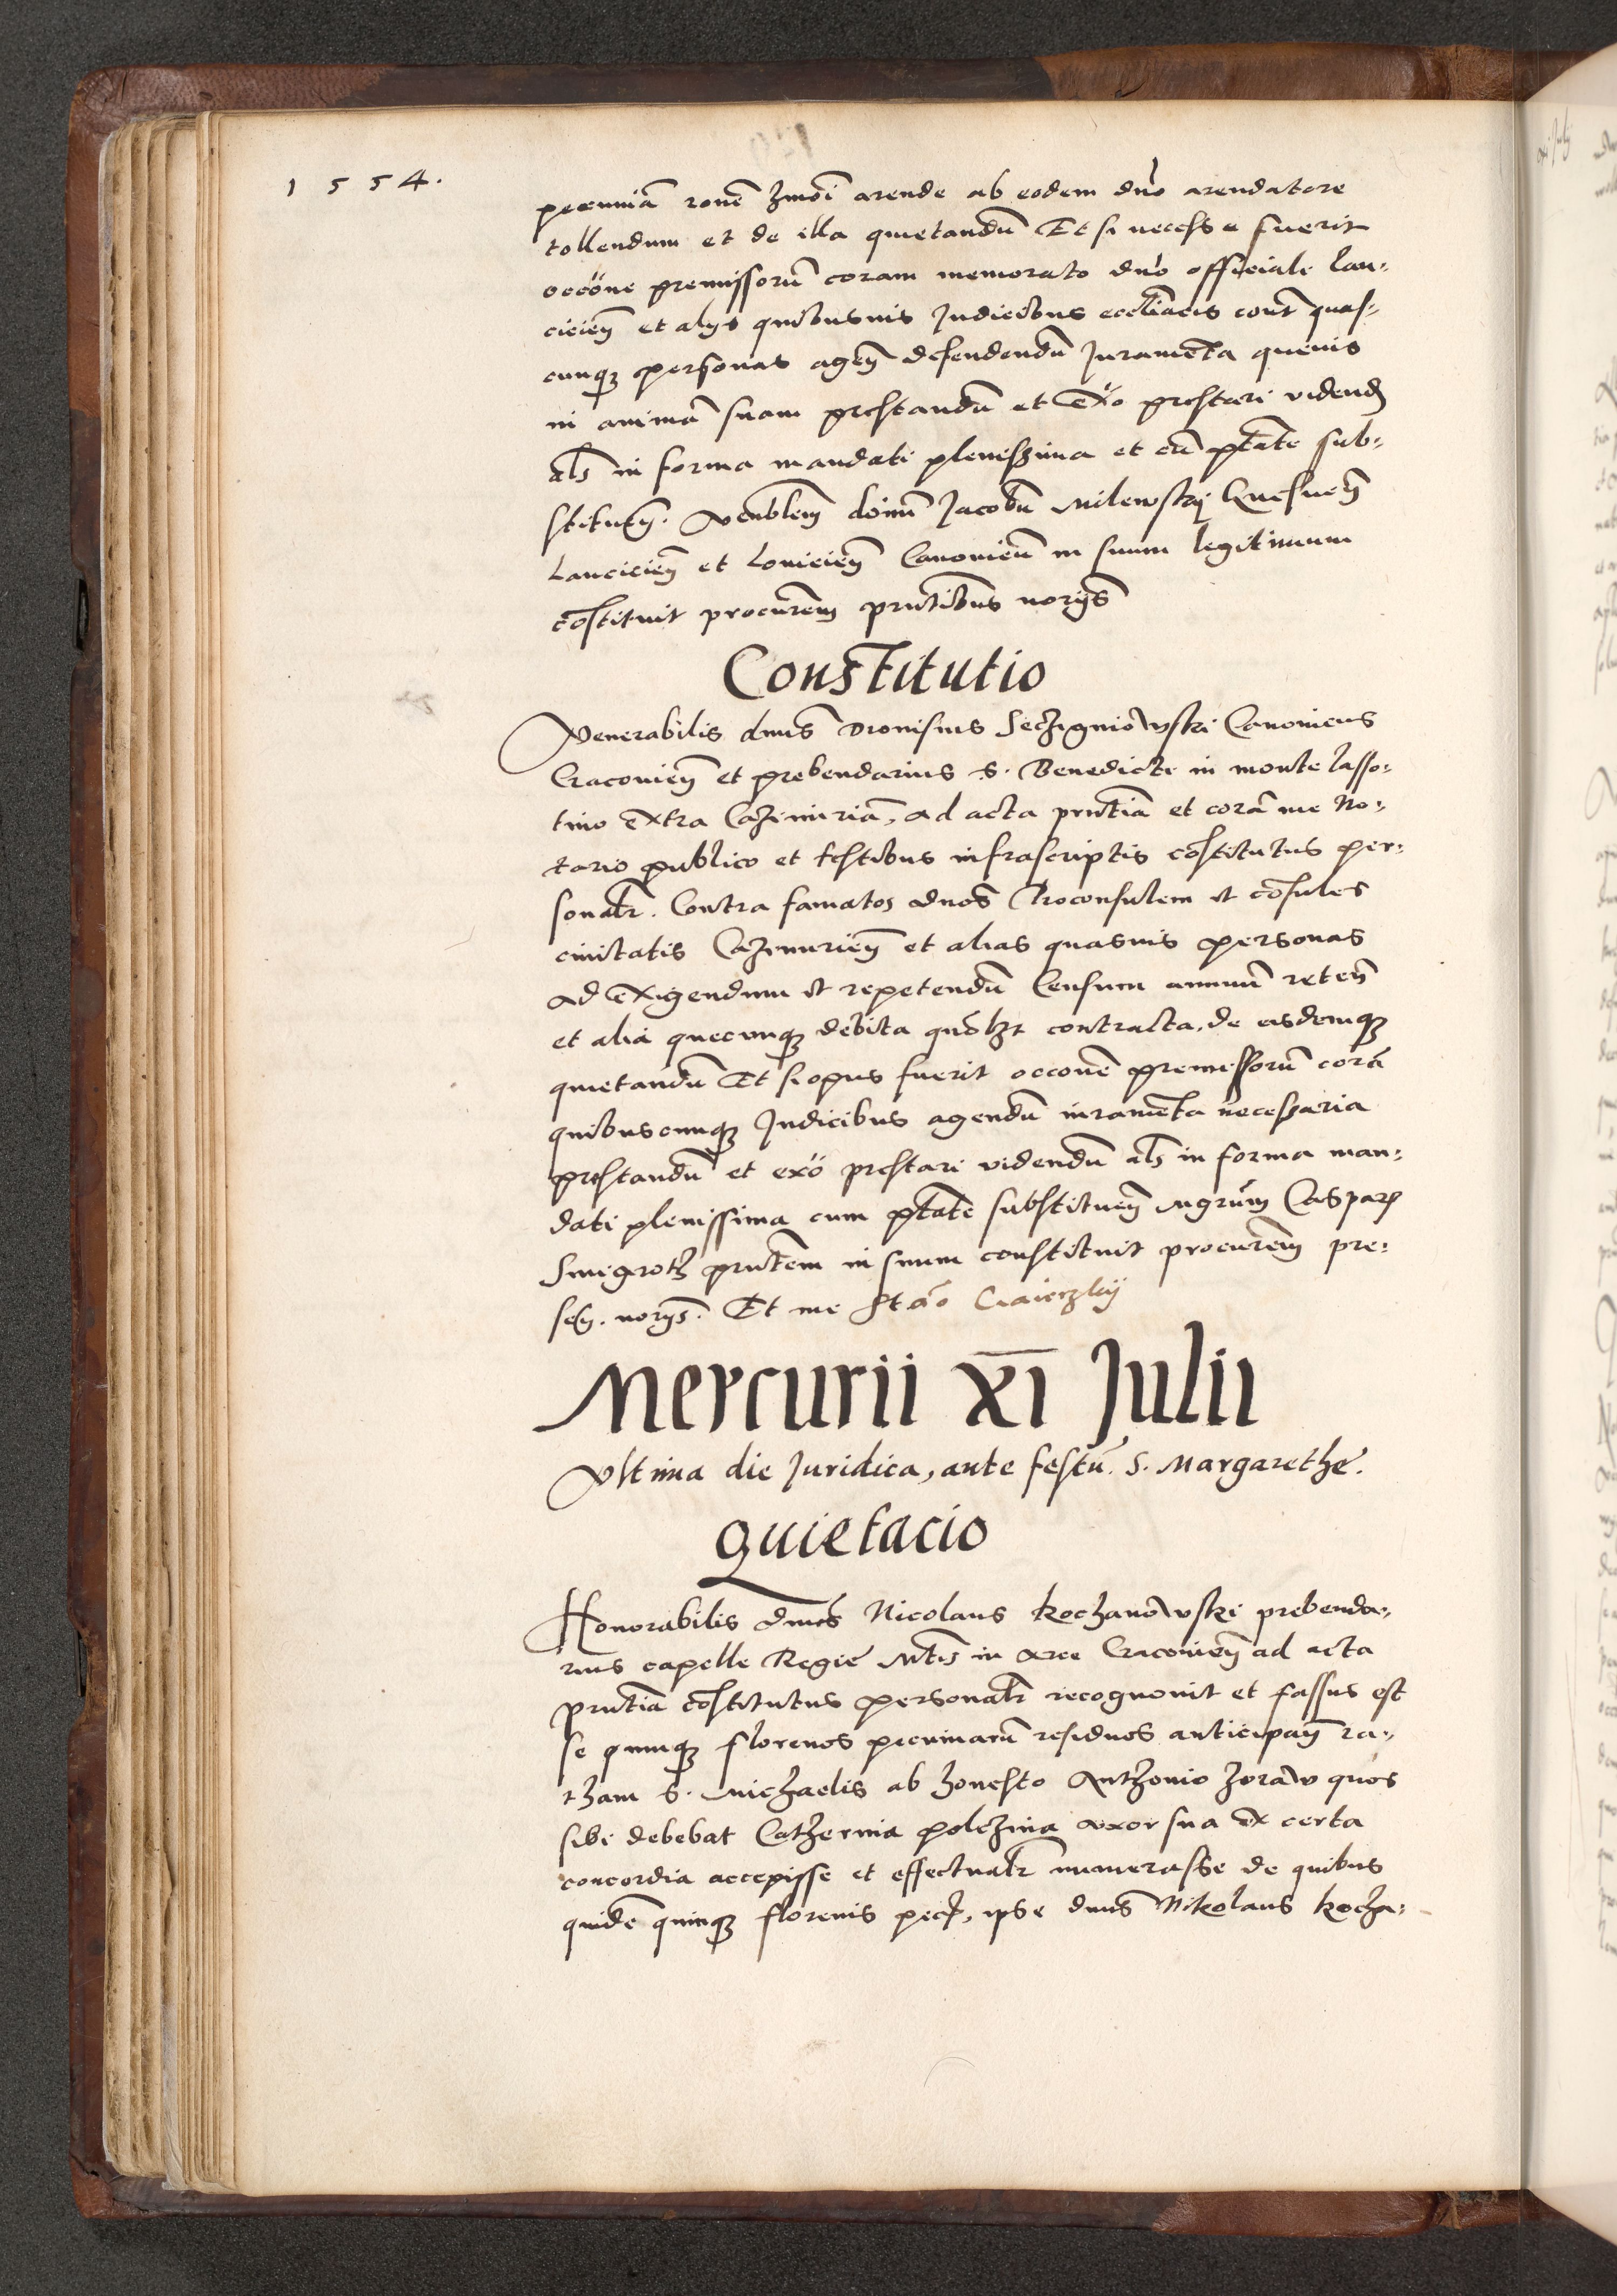 1 5 5 4.
pecuniã rone hmõi arende ab eodem dno arendatore
tollendum et de illa quietandũ Et si necesse fuerit
occõne premissorũ coram memorato dno officiale Lan-
cicien̄ et alijs quibusuis Judicibus eccliãcis cont quas-
cunq personas agen̄ defendendũ Juramẽta queuis
in animã suam prestandũ et exo prestari videnđ
als in forma mandati plenissima et cũ ptãte sub-
stituen̄. Venblem dõinũ Jacobũ Milewskij Gnesnen̄
Lancicien̄ et Louicien̄ Canonicũ in suum legitimum
cõstituit procurem pntibus norijs
Constitutio
Venerabilis dnus Dionisius Seczigniowski Canonicus
Cracouien̄ et prebendarius S. Benedicti in monte lasso-
tino extra Cazimiriã, ad acta pntia et corã me No-
tario publico et testibus infrascriptis cõstitutus per-
sonalr. Contra famatos dnos Proconsulem et cõsules
ciuitatis Cazimirien̄ et alias quasuis personas
ad exigendum et repetendũ Censum annuũ reten̄
et alia quecunq debita quõlzt contracta, de eisdemq
quietandũ Et si opus fuerit occone premissorũ corã
quibuscunq Judicibus agendũ iuramẽta necessaria
prestandũ et exõ prestari videndũ als in forma man-
dati plenissima cum ptãte substituen̄ Mgrũm Caspar
Smigrotz pntem in suum constituit procurem pre-
sen̄. norijs. Et me Stão Craieczkij
Mercurii XI Julii
Vltima die Juridica, ante festũ. S. Margarethe.
Quietacio
Honorabilis dnus Nicolaus Koczanowski prebenda-
rius capelle Regie Mtis in arce Cracouien̄ ad acta
pntia cõstitutus personalr recognouit et fassus est
se quinq florenos pecuniarũ residuos anticipan̄ ra-
tham S. Michaelis ab honesto Anthonio Zoraw quos
sibi debebat Catherina polczina vxor sua ex certa
concordia accepisse et effectualr numerasse de quibus
quidẽ quinq florenis pec, ipse dnus Nikolaus Kocza-